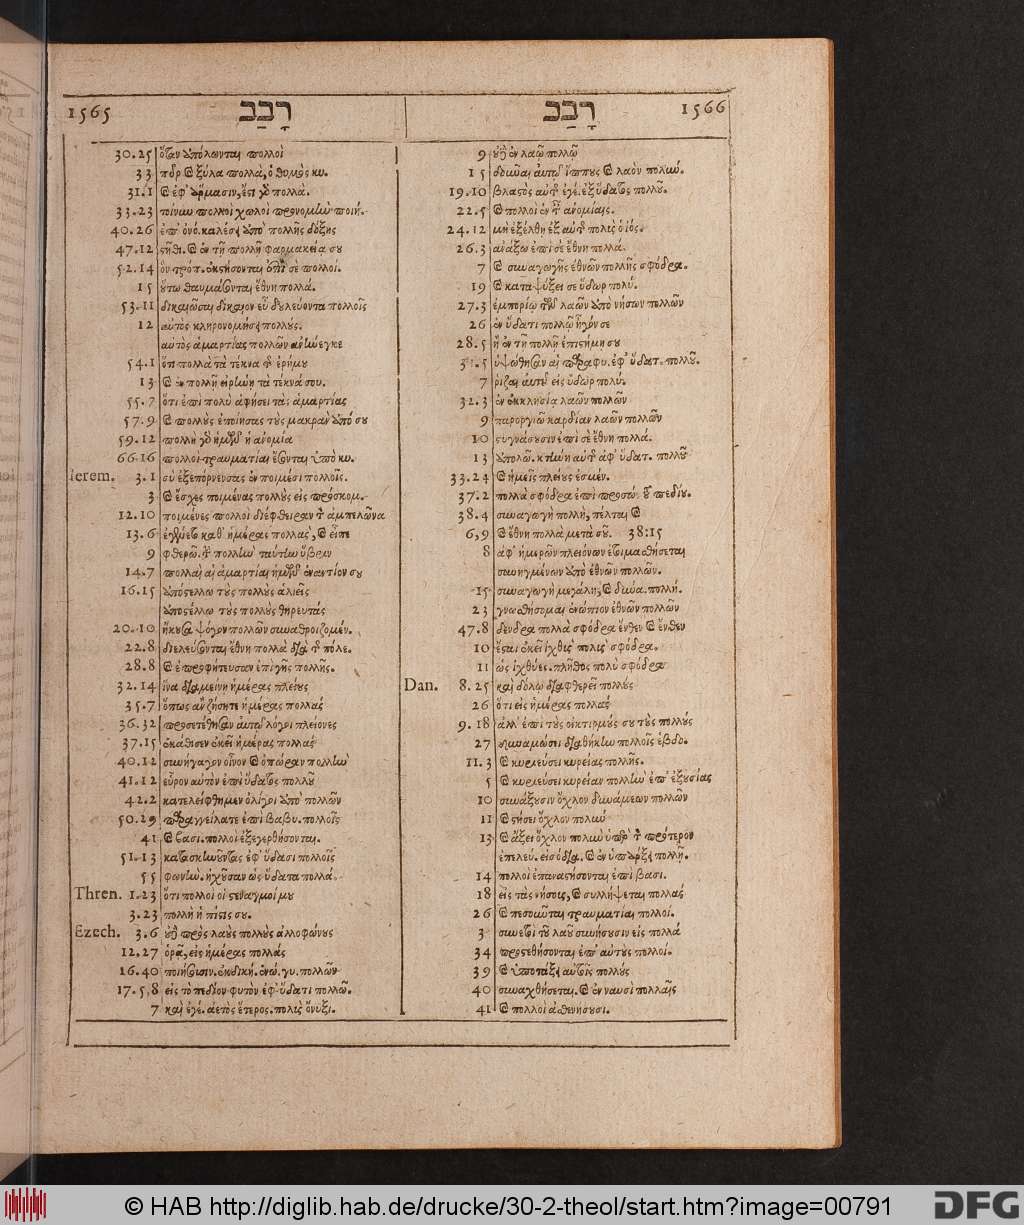 1565 רָבַב
30.25 ὅταν πολλοὶ
33 πῦρ καὶ ξύλα πολλὰ, ὁ θυμὸς κυ.
31.1 καὶ ἐφ' ἅρμασιν, ἔστι γὸ πολλὰ.
33.23 τοίνυν πολλοὶ χωλοὶ προνομὴν ποιή.
40.26 ἐπ' ὀνό. καλέσει ὑπὸ πολλῆς δόξης
47.12 στῆθι. καὶ ἐν τῇ πολλῇ φαρμακείᾳ σου
52.14 ὃν τρόπ. ἐκστήσονται ἐπὶ σὲ πολλοί.
15 οὕτω θαυμάσονται ἔθνη πολλά.
53.11 δικαιῶσαι δίκαιον εὖ δουλεύοντα πολλοῖς
12 αὐτὸς κληρονομήσει πολλούς.
αὐτὸς ἁμαρτίας πολλῶν ἀνήνεγκε
54.1 ὅτι πολλὰ τὰ τέκνα τῆς ἐρήμου
13 καὶ ἐν πολλῇ εἰρήνῃ τὰ τέκνά σου.
55.7 ὅτι ἐπὶ πολὺ ἀφήσει τὰς ἁμαρτίας
57.9 καὶ πολλοὺς ἐποίησας τοὺς μακρὰν ὑπό σου
59.12 πολλὴ γὸ ἡμῶν ἡ ἀνομία
66.16 πολλοὶ τραυματίαι ἔσονται ὑπὸ κυ.
Ierem. 3.1 σὺ ἐξεπόρνευσας ἐν ποιμέσι πολλοῖς.
3 καὶ ἔσχες ποιμένας πολλοὺς εἰς πρόσκομ.
12.10 ποιμένες πολλοὶ διέφθειραν τὸν ἀμπελῶνα
13.6 ἐγένετο καθ' ἡμέρας πολλας, καὶ εἶπε
9 φθερῶ. τὴν πολλὴν ταύτην ὕβριν
14.7 πολλαὶ αἱ ἁμαρτίαι ἡμῶν ἐναντίον σου
16.15 ὑποστέλλω τοὺς πολλοὺς ἁλιεῖς
ἀποστέλλω τοὺς πολλοὺς θηρευτάς
20.10 ἤκουσα ψόγον πολλῶν συναθροιζομέν.
22.8 διελεύσονται ἔθνη πολλὰ διὰ τ πόλε.
28.8 καὶ ἐπροφήτευσαν ἐπὶ γῆς πολλῆς.
32.14 ἵνα διαμείνῃ ἡμέρας πλείους
35.7 ὅπως ἂν ζήσητε ἡμέρας πολλάς
36.32 προσετέθησαν αὐτῷ λόγοι πλείονες
37.15 ἐκάθισεν ἐκεῖ ἡμέρας πολλάς
40.12 συνήγαγον οἶνον καὶ ὀπώραν πολλὴν
41.12 εὗρον αὐτὸν ἐπὶ ὕδατος πολλοῦ
42.2 κατελείφθημεν ὀλίγοι ἀπὸ πολλῶν
50.29 παραγγείλατε ἐπὶ βαβυ. πολλοῖς
41 καὶ βασι. πολλοὶ ἐξεγερθήσονται.
51.13 κατασκηνοῦντας ἐφ' ὕδασι πολλοῖς
55 φωνὴν. ἠχοῦσαν ὡς ὕδατα πολλά.
Thren. 1.23 ὅτι πολλοὶ οἱ στεναγμοί μου
3.23 πολλὴ ἡ πίστις σου.
Ezech. 3.6 οὐ πρὸς λαοὺς πολλοὺς ἀλλοφώνους
12.27 ὁρᾷ, εἰς ἡμέρας πολλάς
16.40 ποιήσουσιν. ἐκδική. ἐνώ. γυ. πολλῶν
17.5,8 εἰς τὸ πεδίον φυτὸν ἐφ' ὕδατι πολλῷ.
7 καὶ ἐγέ. ἀετὸς ἕτερος. πολὺς ὄνυξι.
רָבַב 1566
9 οὐδ' ἐν λαῷ πολλῷ
15 δοῦναι αὐτῷ ἵππους καὶ λαὸν πολύν.
19.10 βλαστὸς αὐτῆς ἐγέ. ἐξ ὕδατος πολλοῦ.
22.5 καὶ πολλοὶ ἐν τ ἀνομίαις.
24.12 μὴ ἐξέλθῃ ἐξ αὐτῆς πολὺς ὁ ἰός.
26.3 ἀνάξω ἐπὶ σὲ ἔθνη πολλά.
7 καὶ συναγωγῆς ἐθνῶν πολλῆς σφόδρα.
19 καὶ κατακαλύψει σε ὕδωρ πολύ.
27.3 ἐμπορίῳ τῶν λαῶν ἀπὸ νήσων πολλῶν
26 ἐν ὕδατι πολλῷ ἦγόν σε
28.5 ἢ ἐν τῇ πολλῇ ἐπιστήμῃ σου
31.5 ὑψώθησαν αἱ παραφυ. ἐφ' ὕδατ. πολλοῦ.
7 ῥίζαι αὐτοῦ εἰς ὕδωρ πολύ.
32.3 ἐν ἐκκλησίᾳ λαῶν πολλῶν
9 παροργιῶ καρδίαν λαῶν πολλῶν
10 στυγνάσουσιν ἐπὶ σὲ ἔθνη πολλά.
13 ἀπολῶ. κτήνη αὐτῆς ἀφ' ὕδατ. πολλοῦ
33.24 καὶ ἡμεῖς πλείους ἐσμέν.
37.2 πολλὰ σφόδρα ἐπὶ προσώ. τοῦ πεδίου.
38.4 συναγωγὴ πολλὴ, πέλται καὶ
6,9 καὶ ἔθνη πολλὰ μετὰ σοῦ. 38:15
8 ἀφ' ἡμερῶν πλειόνων ἑτοιμασθήσεται
συνηγμένων ἀπὸ ἐθνῶν πολλῶν.
15 συναγωγὴ μεγάλη, καὶ δύνα. πολλή.
23 γνωσθήσομαι ἐνώπιον ἐθνῶν πολλῶν
47.8 δένδρα πολλὰ σφόδρα ἔνθεν καὶ ἔνθεν
10 ἔσται ἐκεῖ ἰχθὺς πολὺς σφόδρα.
11 ὡς ἰχθύες. πλῆθος πολὺ σφόδρα
Dan. 8.25 καὶ δόλῳ διαφθερεῖ πολλούς
26 ὅτι εἰς ἡμέρας πολλάς
9.18 ἀλλ' ἐπὶ τοὺς οἰκτιρμούς σου τοὺς πολλούς
27 δυναμώσει διαθήκην πολλοῖς ἑβδο.
11.3 καὶ κυριεύσει κυρείας πολλῆς.
5 καὶ κυριεύσει κυρείαν πολλὴν ἐπ' ἐξουσίας
10 συνάξουσιν ὄχλον δυνάμεων πολλῶν
11 καὶ στήσει ὄχλον πολύν
13 καὶ ἄξει ὄχλον πολὺν ὑπὲρ τὸν πρότερον
ἐπελεύ. εἰσόδια. καὶ ἐν ὑπάρξει πολλῇ.
14 πολλοὶ ἐπαναστήσονται ἐπὶ βασι.
18 εἰς τὰς νήσους, καὶ συλλήψεται πολλάς
26 καὶ πεσοῦνται τραυματίαι πολλοί.
33 συνετοὶ τοῦ λαοῦ συνήσουσιν εἰς πολλά
34 προστεθήσονται ἐπ' αὐτοὺς πολλοί.
39 καὶ ὑποτάξει αὐτοῖς πολλούς
40 συναχθήσεται. καὶ ἐν ναυσὶ πολλαῖς
41 καὶ πολλοὶ ἀσθενήσουσι.
© HAB http://diglib.hab.de/drucke/30-2-theol/start.htm?image=00791 DFG